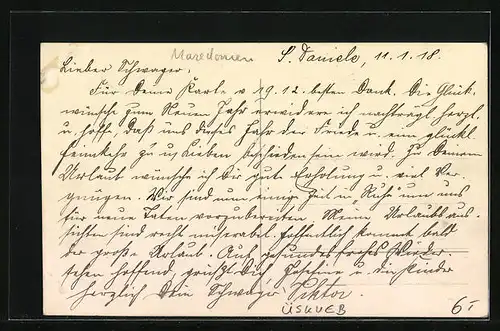 Mazedonien
S. Daniele, 11.1.18.
Lieber Schwager,
Für Deine Karte v 19.12. besten Dank. Die Glück-
wünsche zum Neuen Jahr erwidere ich nachträgl. herzl.
u. hoffe, daß uns dieses Jahr der Friede u. eine glückl.
Heimkehr zu us Lieben beschieden sein wird. Zu Deinem
Urlaub wünsche ich Dir gute Erholung u. viel Ver-
gnügen. Wir sind nun einige Zeit in "Ruhe" um uns
für neue Taten vorzubereiten. Meine Urlaubsaus-
sichten sind recht miserabel. Hoffentlich kommt bald
der große Urlaub. Auf gesundes frohes Wieder-
sehen hoffend, grüßt Dich Josefine u. die Kinder
herzlich Dein Schwager Viktor.
ÜSKUEB
6.-